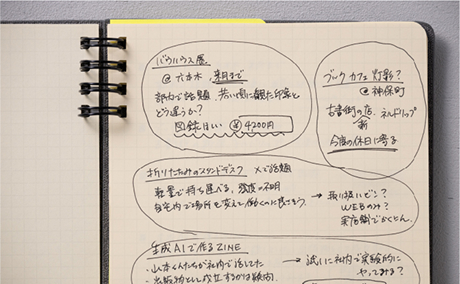 バウハウス展
@ 六本木、来月まで
部内で話題、若い頃に観た印象と
どう違うか?
図録ほしい ¥4200円
ブックカフェ 灯影?
@ 神保町
古書街の店、ネルドリップ
新
今度の休日に寄る
折りたたみのスタンドデスク Xで話題
軽量で持ち運べる、強度は不明
自宅内で場所を変えて働くのに良さそう。
→ 取り扱いどこ?
WEBのみ?
実店舗でかくにん。
生成AIで作るZINE
・山本くんたちが社内で話してた
・出版物として成立するかは疑問
→ 試しに社内で実験的に
やってみる?